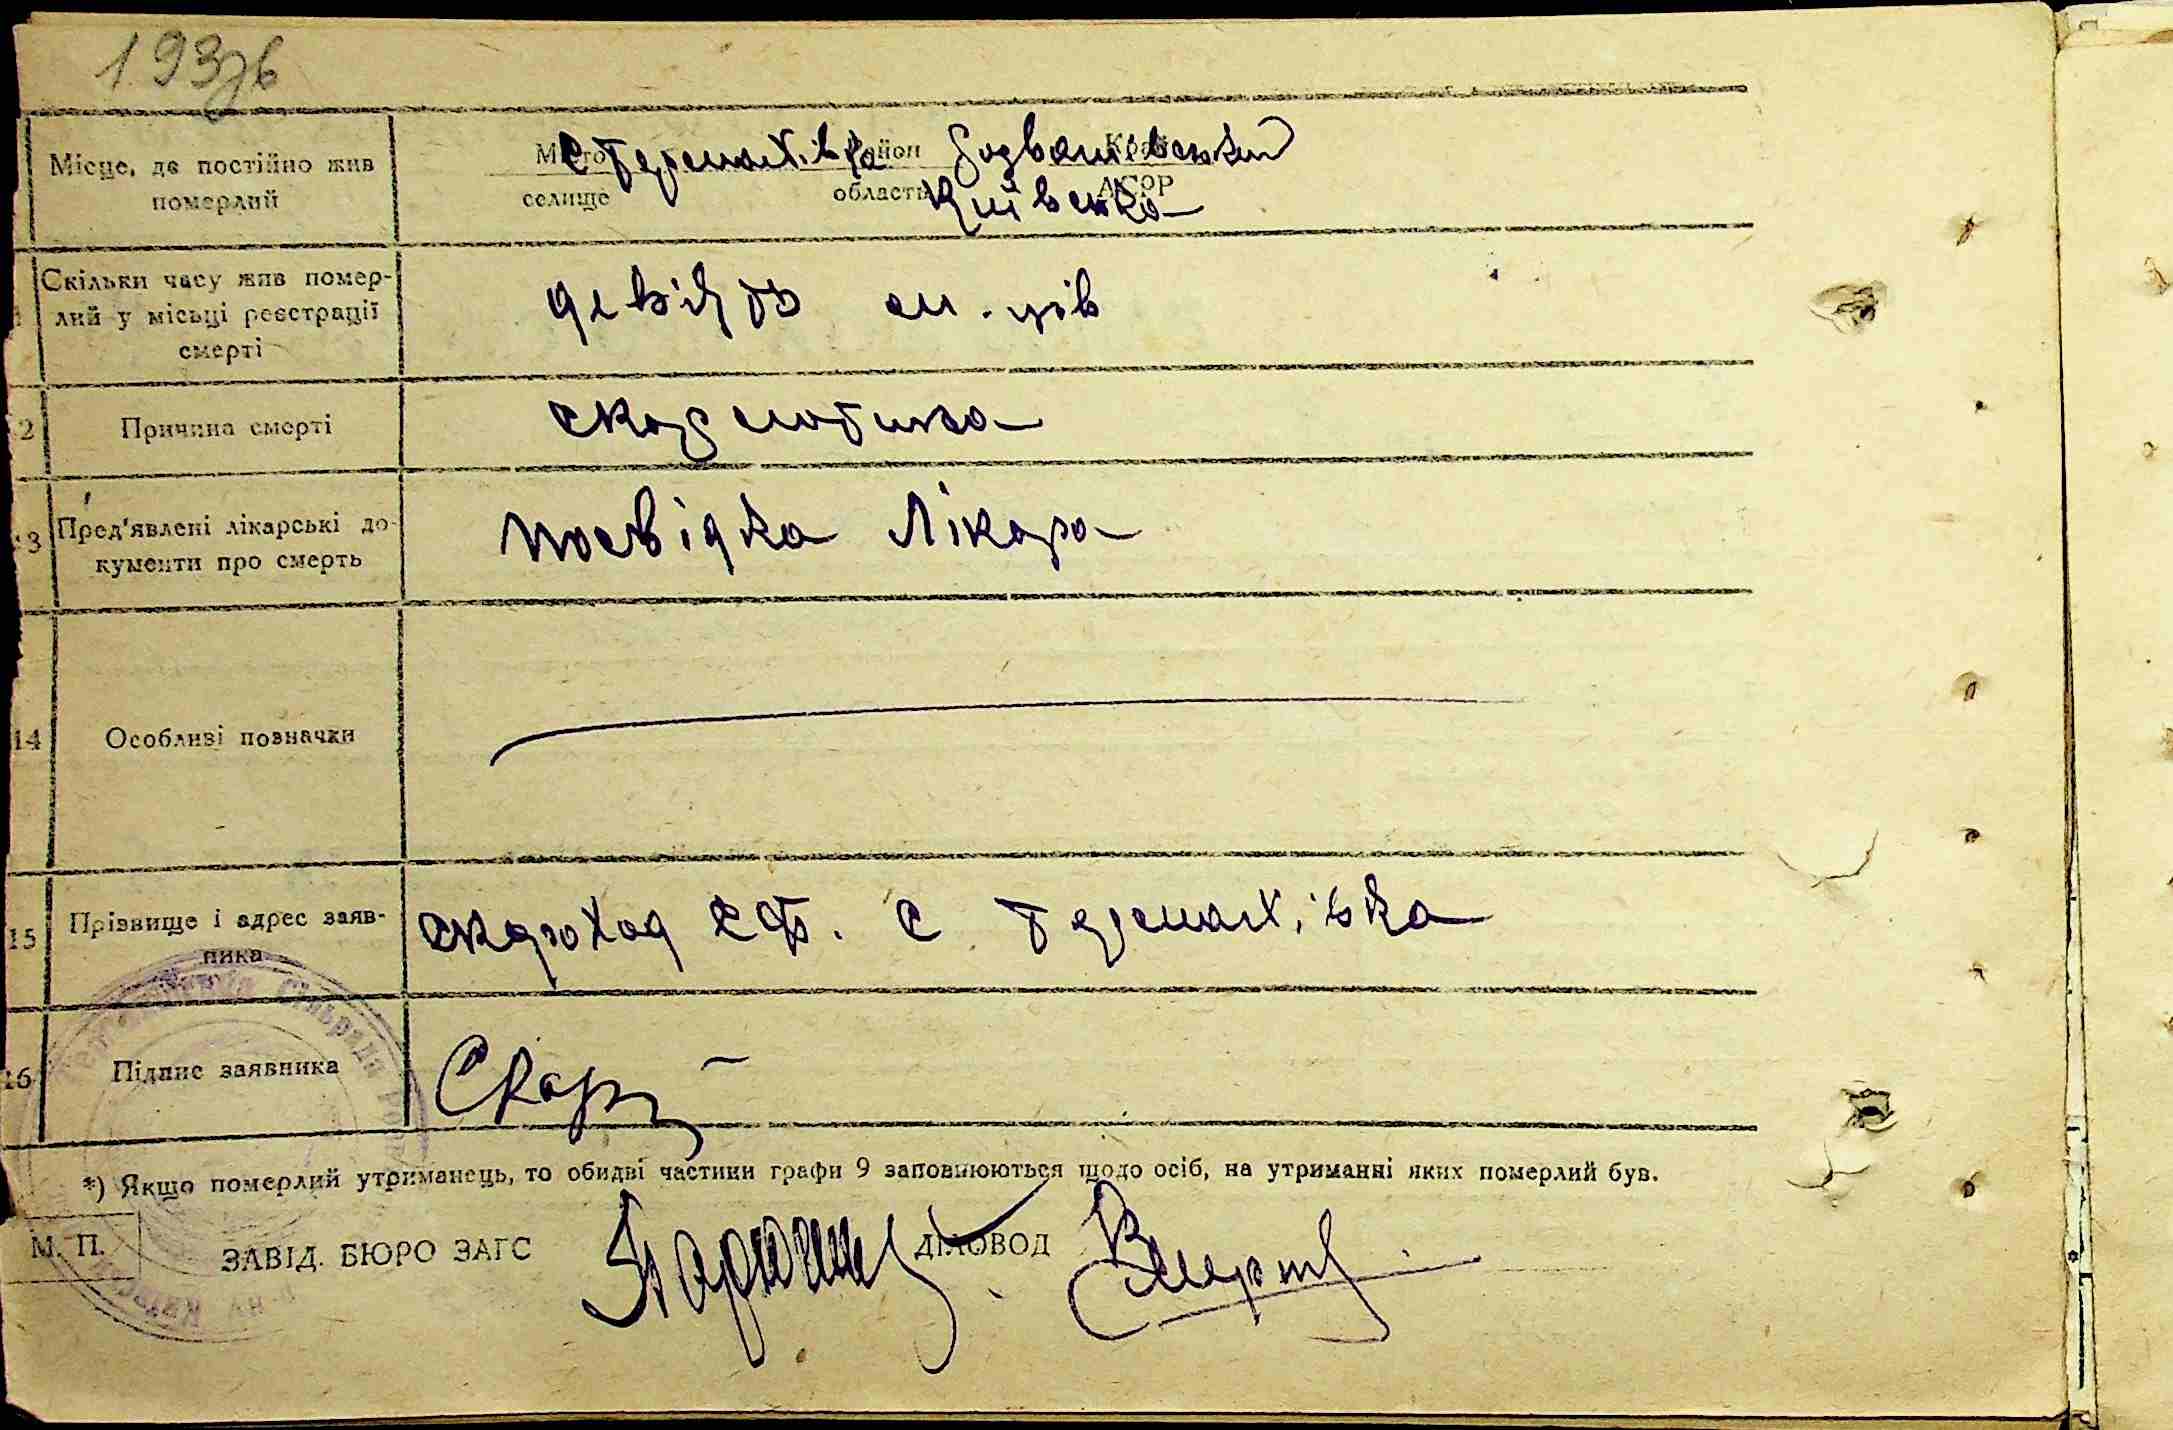 193зв
Місце, де постійно жив
померлий
Місто
селище
район
область
Край
АСРР
с Теремахівка
Київська
Скільки часу жив помер-
лий у місьці реєстрації
смерті
девідть м.ців
2 Причина смерті
скарлотина
13 Пред'явлені лікарські до-
кументи про смерть
посвідка лікара
14 Особливі позначки
15 Прізвище і адрес заяв-
ника
скароход с Теремахівка
16 Підпис заявника
Скар
*) Якщо померлий утриманець, то обидві частини графи 9 заповнюються щодо осіб, на утриманні яких померлий був.
М. П. ЗАВІД. БЮРО ЗАГС ДІЛОВОД